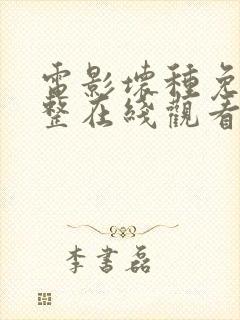 電影壞種免
整在綫觀看
李書磊